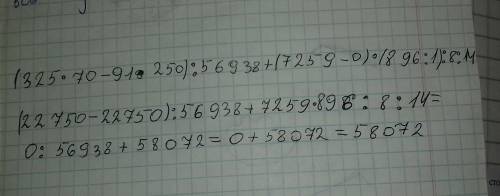 (325·70-91·250):56938+(7259-0)·(896:1):8:14
(22750-22750):56938+7259·896:8:14=
0:56938+58072=0+58072=58072